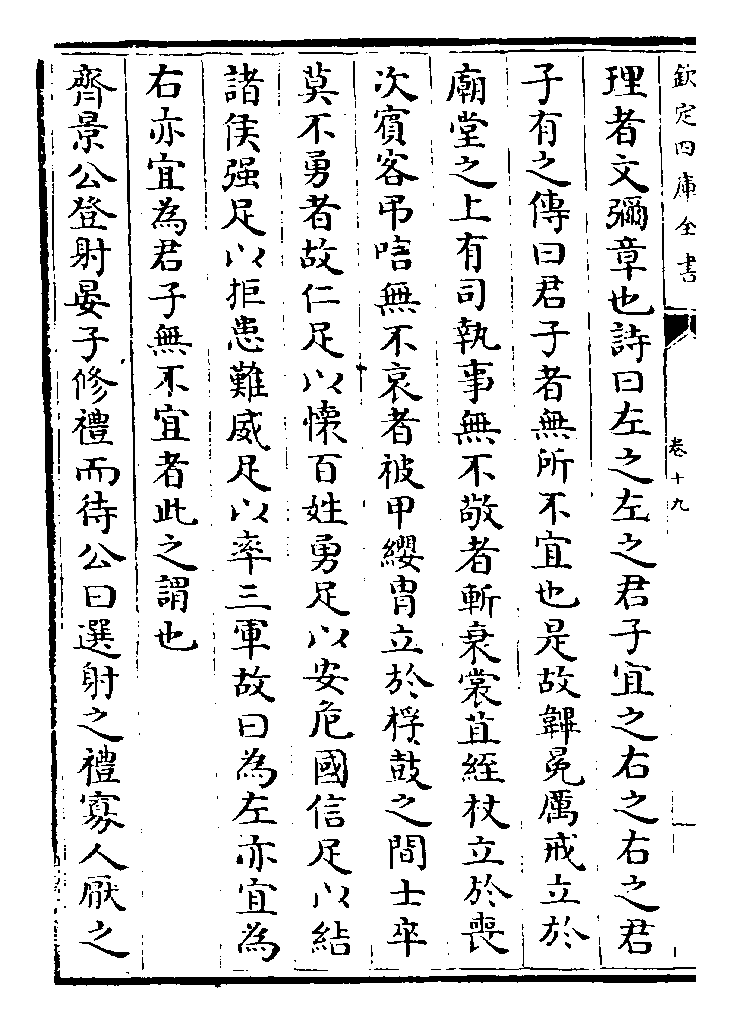 欽定四庫全書
卷十九
理者文彌章也詩曰左之左之君子宜之右之右之君
子有之傳曰君子者無所不宜也是故韠冕厲戒立於
廟堂之上有司執事無不敬者斬衰裳苴絰杖立於喪
次賓客弔唁無不哀者被甲纓胄立於桴鼓之間士卒
莫不勇者故仁足以懷百姓勇足以安危國信足以結
諸侯强足以拒患難威足以率三軍故曰為左亦宜為
右亦宜為君子無不宜者此之謂也
齊景公登射晏子修禮而待公曰選射之禮寡人厭之